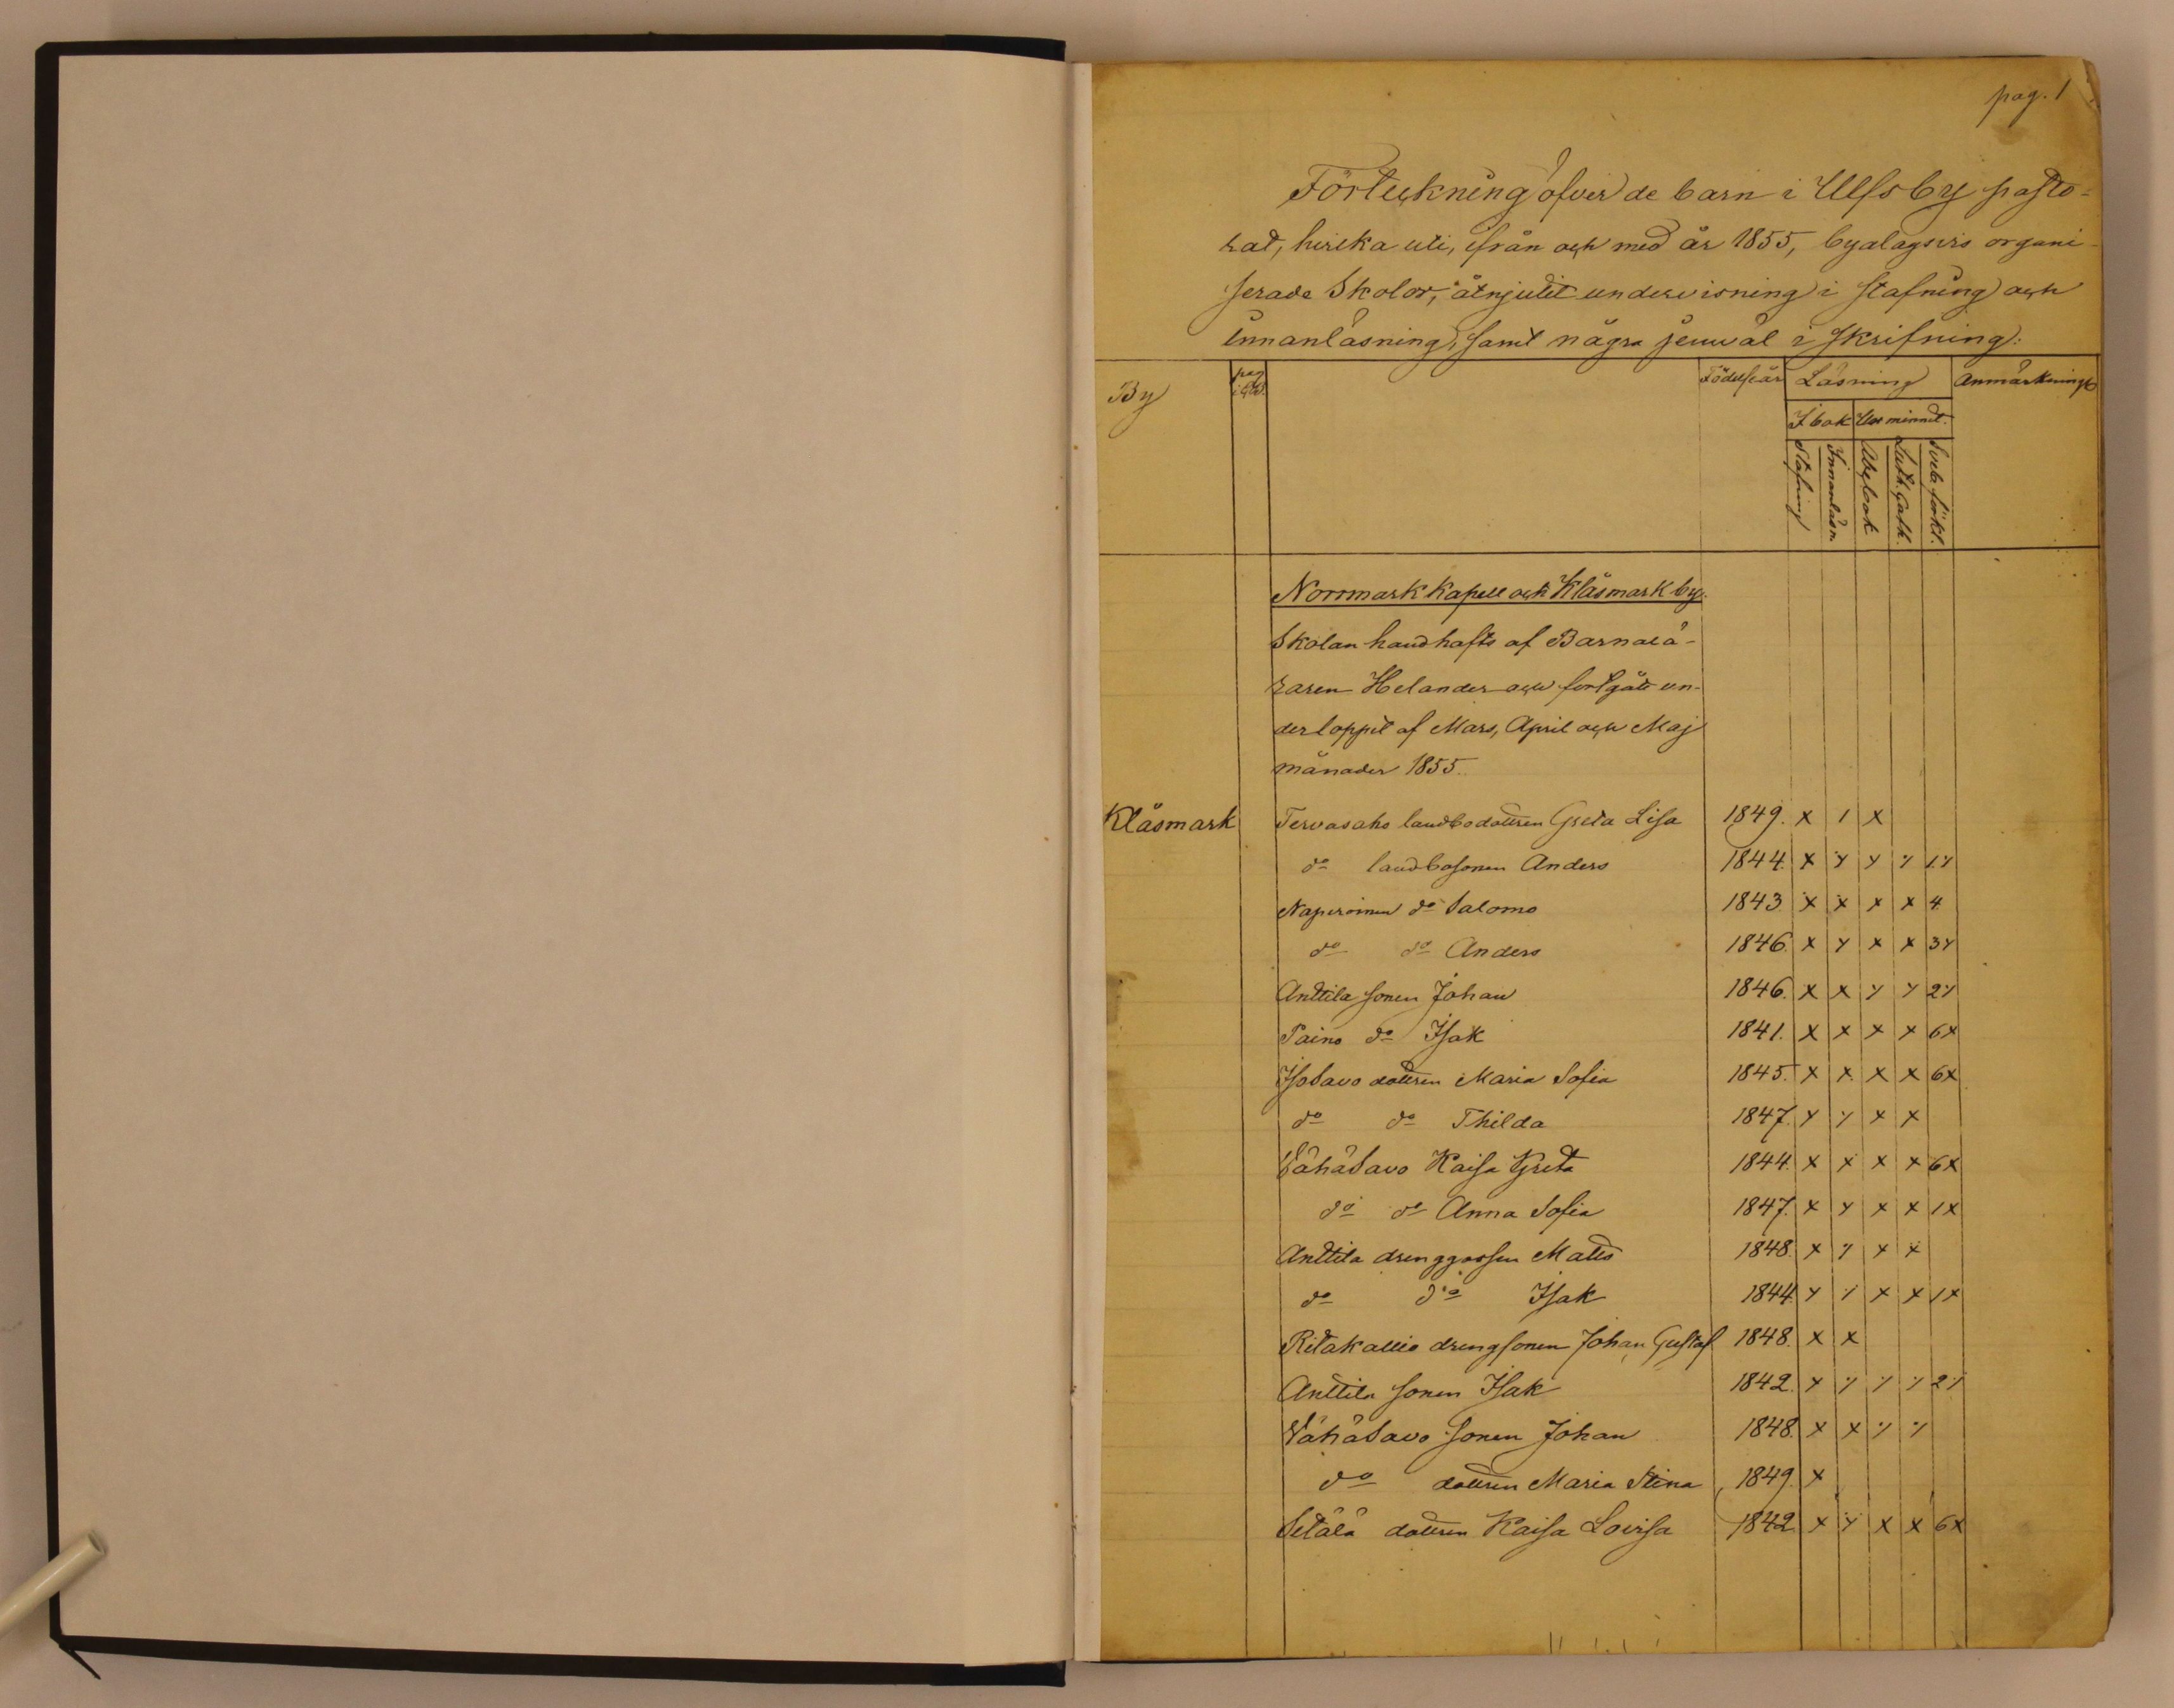 pag. 1
Förteckning öfver de barn i Ulfsby pasto-
rat, hvilka uti, ifrån och med år 1855, byalagsvis organi-
serade Skolor, åtnjutit undervisning i stafning och
innanläsning, samt några jemväl i skrifning:
By
pag
Födelseår
Läsning
Anmärkningar
I bok
Ur minnet.
Stafning
Innanläsn.
Abcbok
Luth. Cath.
Sveb. förkl.
Norrmark Kapell och Klåsmark by.
Skolan handhafts af Barnalä-
raren Helander och fortgått un-
der loppet af Mars, April och Maj
månader 1855.
Klåsmark Tervasaho landbodottren Greta Lisa 1849. x 1 x
do landbosonen Anders 1844. x x x x 1x
do Salomo 1843 x x x x 4
do do Anders 1846. x x x x 3x
Anttila sonen Johan 1846. x x x x 2x
Paino do Isak 1841. x x x x 6x
IsoSavo dottren Maria Sofia 1845. x x x x 6x
do do Thilda 1847. x x x x
WähäSavo Kaisa Greta 1844. x x x x 6x
do do Anna Sofia 1847. x x x x 1x
Anttila drenggossen Matts 1848. x x x x
do do Isak 1844. x x x x 1x
Ritakallio drengsonen Johan Gustaf 1848. x x
Anttila sonen Isak 1842. x x x x 2x
WähäSavo sonen Johan 1848. x x x x
do dottren Maria Stina 1849. x
Setälä dottren Kaisa Lovisa 1842 x x x x 6x